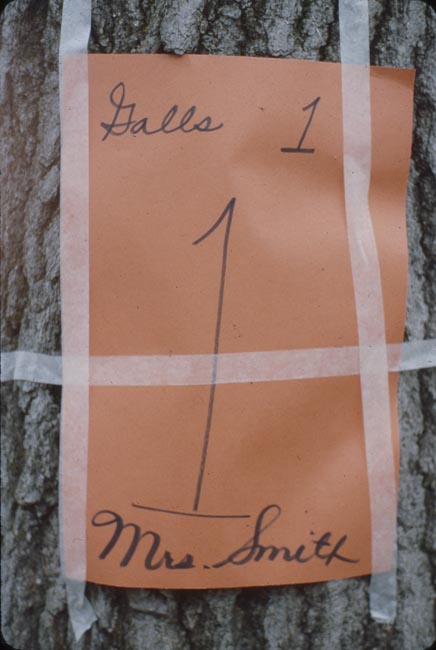 Galls 1
1
Mrs. Smith